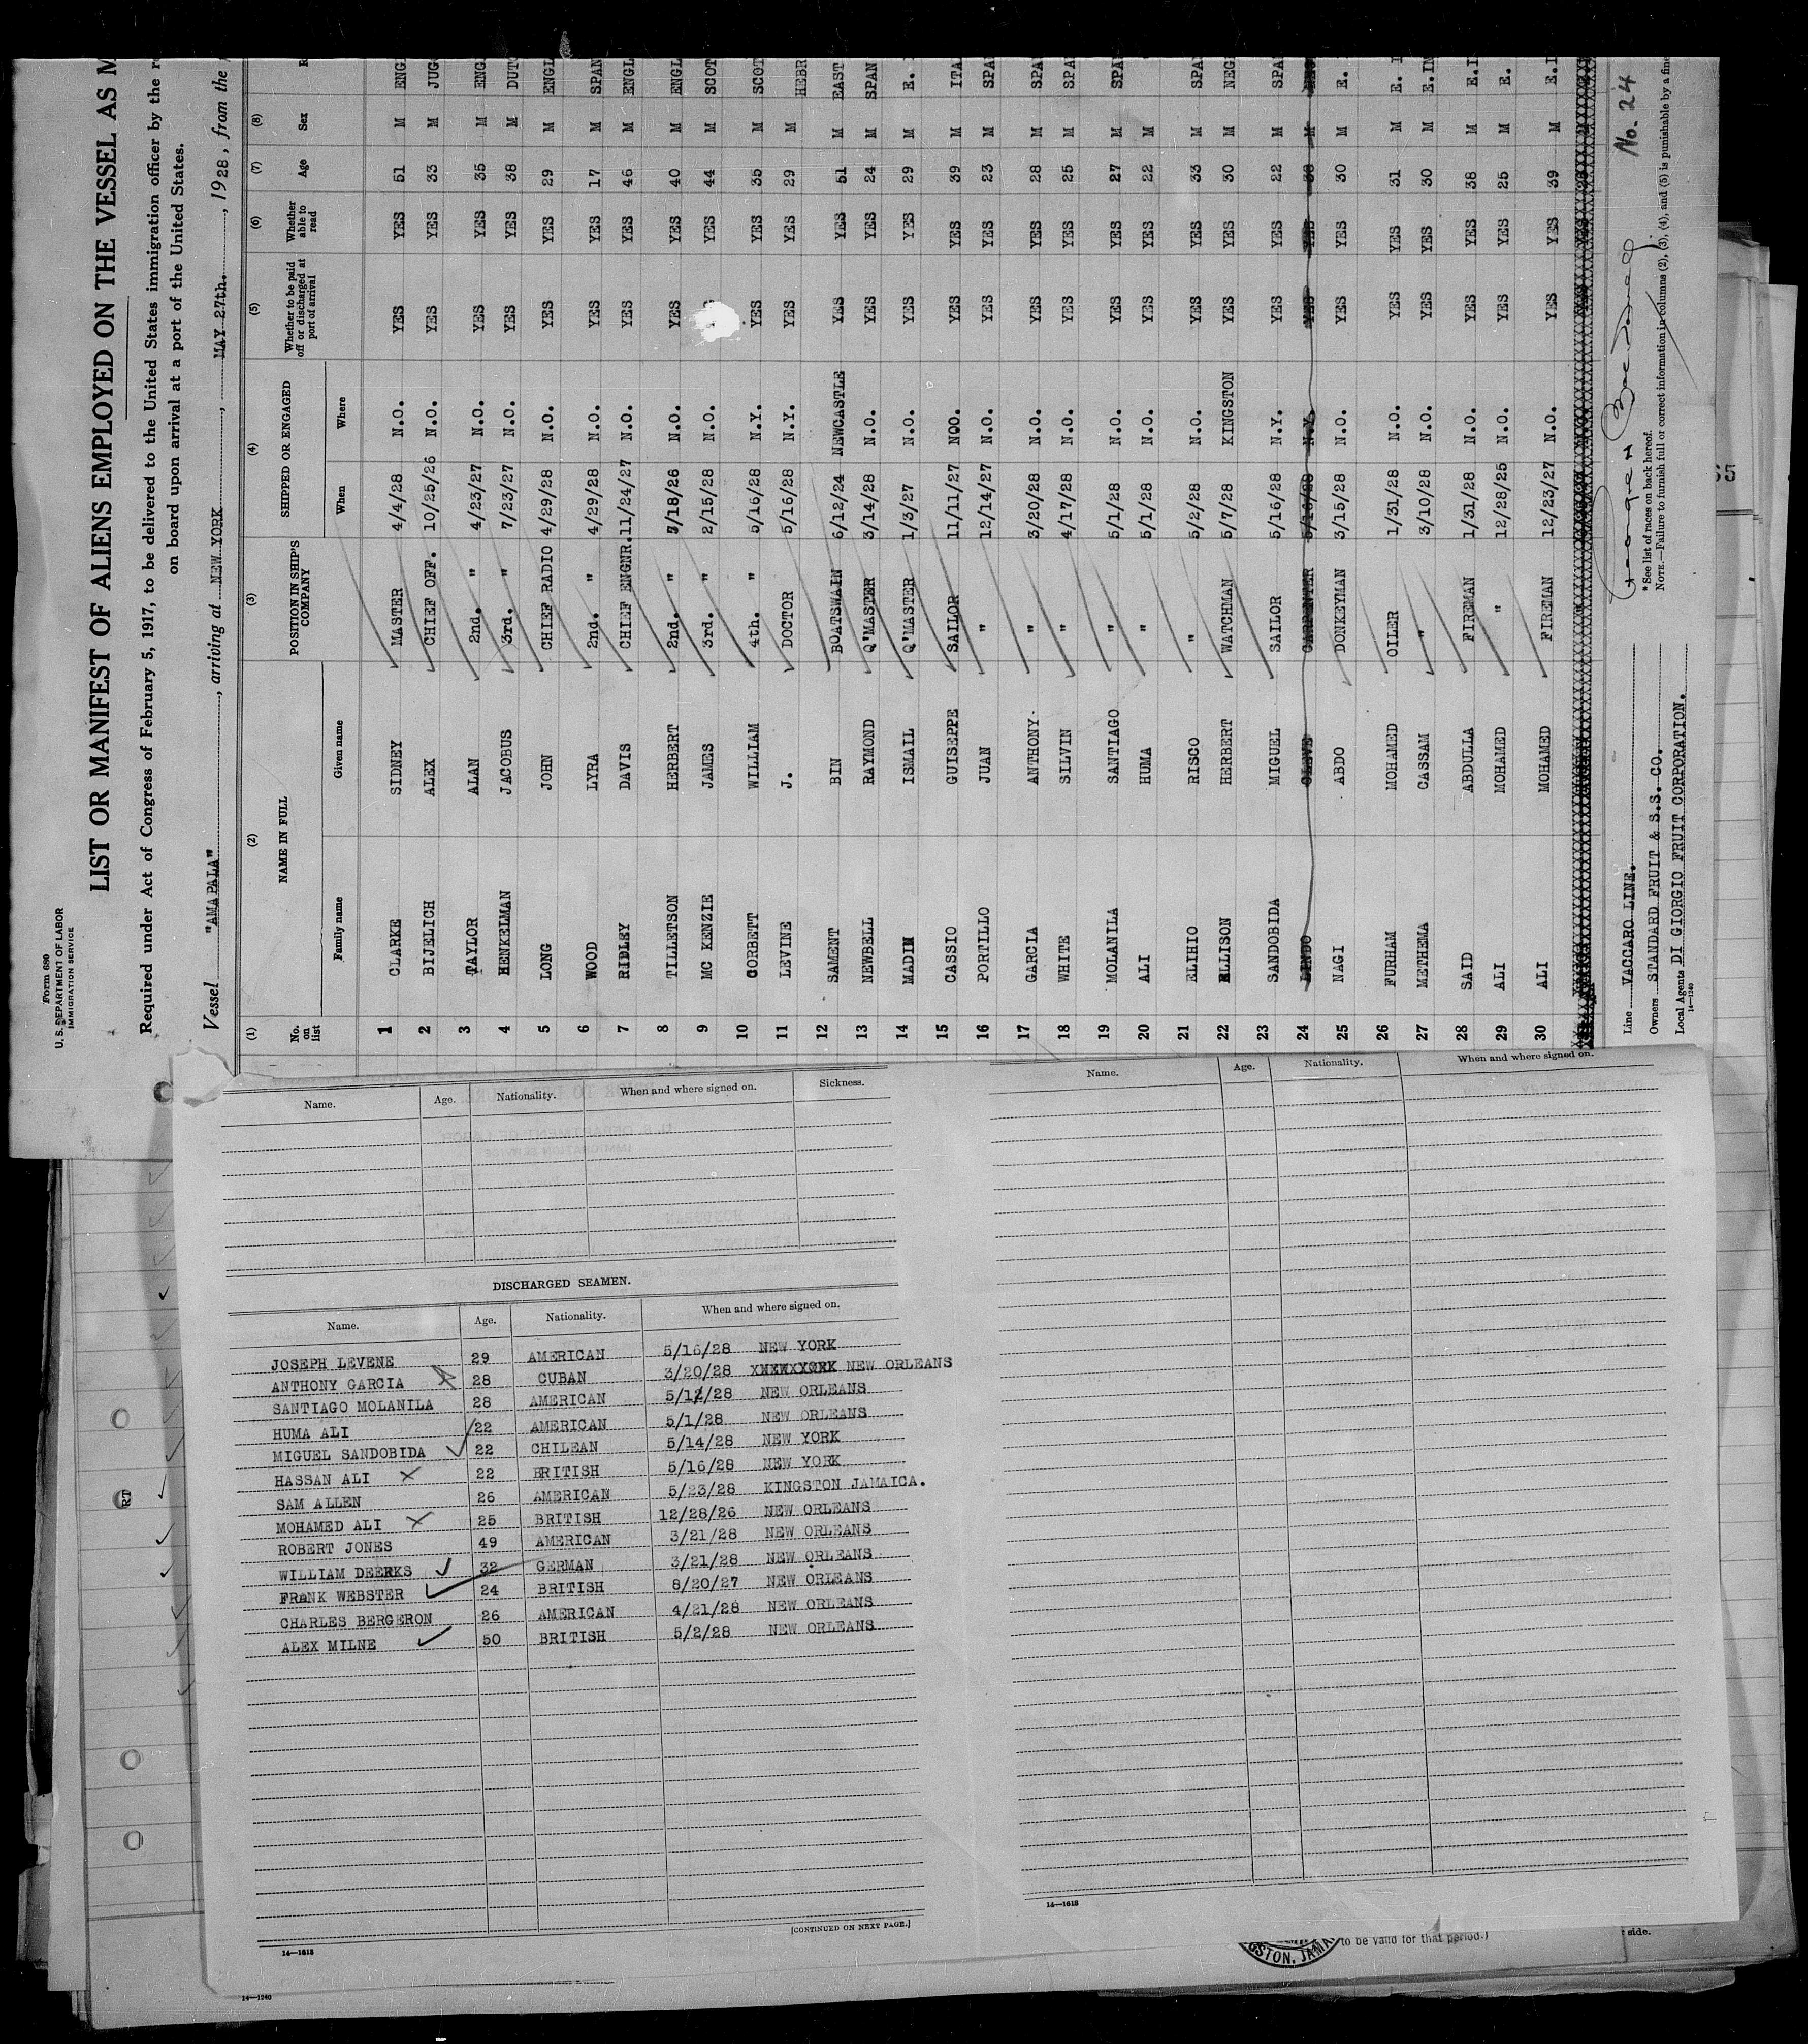 Form 680
U. S. DEPARTMENT OF LABOR
IMMIGRATION SERVICE
LIST OR MANIFEST OF ALIENS EMPLOYED ON THE VESSEL AS M
Required under Act of Congress of February 5, 1917, to be delivered to the United States immigration officer by the re
on board upon arrival at a port of the United States.
Vessel "AMAPALA", arriving at NEW YORK, MAY 27th., 1928, from the
(1) (2) (3) (4) (5) (6) (7) (8)
No. on list NAME IN FULL POSITION IN SHIP'S COMPANY SHIPPED OR ENGAGED Whether to be paid off or discharged at port of arrival Whether able to read Age Sex R
Family name Given name When Where
1 CLARKE SIDNEY MASTER 4/4/28 N.O. YES YES 51 M ENGL
2 BIJELICH ALEX CHIEF OFF. 10/25/26 N.O. YES YES 33 M JUG
3 TAYLOR ALAN 2nd. " 4/23/27 N.O. YES YES 35 M ENG
4 HENKELMAN JACOBUS 3rd. " 7/23/27 N.O. YES YES 38 M DUT
5 LONG JOHN CHIEF RADIO 4/29/28 N.O. YES YES 29 M ENGL
6 WOOD LYRA 2nd. " 4/29/28 N.O. YES YES 17 M SPAN
7 RIDLEY DAVIS CHIEF ENGNR. 11/24/27 N.O. YES YES 46 M ENGL
8 TILLETSON HERBERT 2nd. " 5/18/26 N.O. YES YES 40 M ENGL
9 MC KENZIE JAMES 3rd. " 2/15/28 N.O. YES 44 M SCOT
10 CORBETT WILLIAM 4th. " 5/16/28 N.Y. YES YES 35 M SCOT
11 LEVINE J. DOCTOR 5/16/28 N.Y. YES YES 29 M HEBR
12 SAMENT BIN BOATSWAIN 6/12/24 NEWCASTLE YES YES 51 M EAST
13 NEWBELL RAYMOND Q'MASTER 3/14/28 N.O. YES YES 24 M SPAN
14 MADIN ISMAIL Q'MASTER 1/3/27 N.O. YES YES 29 M E.
15 CASSIO GUISEPPE SAILOR 11/11/27 NOO. YES YES 39 M ITA
16 PORTILLO JUAN " 12/14/27 N.O. YES YES 23 M SPA
17 GARCIA ANTHONY " 3/20/28 N.O. YES YES 28 M SPA
18 WHITE SILVIN " 4/17/28 N.O. YES YES 25 M SPA
19 MOLANILA SANTIAGO " 5/1/28 N.O. YES YES 27 M SPA
20 ALI HUMA " 5/1/28 N.O. YES YES 22 M
21 ELIHIO RISCO " 5/2/28 N.O. YES YES 33 M SPA
22 ELLISON HERBERT WATCHMAN 5/7/28 KINGSTON YES YES 30 M NEG
23 SANDOBIDA MIGUEL SAILOR 5/16/28 N.Y. YES YES 22 M SPA
24 LINDO CLEVE CARPENTER 5/16/28 N.Y. YES YES 38 M
25 NAGI ABDO DONKEYMAN 3/15/28 N.O. YES YES 30 M E.
26 FURHAM MOHAMED OILER 1/31/28 N.O. YES YES 31 M E. I
27 METHEMA CASSAM " 3/10/28 N.O. YES YES 30 M E.IN
28 SAID ABDULLA FIREMAN 1/31/28 N.O. YES YES 38 M E.I
29 ALI MOHAMED " 12/28/25 N.O. YES YES 25 M E.
30 ALI MOHAMED FIREMAN 12/23/27 N.O. YES YES 39 M E.I
Line VACCARO LINE.
Owners STANDARD FRUIT & S.S. CO.
Local Agents DI GIORGIO FRUIT CORPORATION.
14—1240
No. 24
*See list of races on back hereof.
NOTE.—Failure to furnish full or correct information in columns (2), (3), (4), and (5) is punishable by a fine
Name. Age. Nationality. When and where signed on. Sickness.
DISCHARGED SEAMEN.
Name. Age. Nationality. When and where signed on.
JOSEPH LEVENE 29 AMERICAN 5/16/28 NEW YORK
ANTHONY GARCIA 28 CUBAN 3/20/28 NEW ORLEANS
SANTIAGO MOLANILA 28 AMERICAN 5/12/28 NEW ORLEANS
HUMA ALI 22 AMERICAN 5/1/28 NEW ORLEANS
MIGUEL SANDOBIDA 22 CHILEAN 5/14/28 NEW YORK
HASSAN ALI 22 BRITISH 5/16/28 NEW YORK
SAM ALLEN 26 AMERICAN 5/23/28 KINGSTON JAMAICA.
MOHAMED ALI 25 BRITISH 12/28/26 NEW ORLEANS
ROBERT JONES 49 AMERICAN 3/21/28 NEW ORLEANS
WILLIAM DEERKS 32 GERMAN 3/21/28 NEW ORLEANS
FRANK WEBSTER 24 BRITISH 8/20/27 NEW ORLEANS
CHARLES BERGERON 26 AMERICAN 4/21/28 NEW ORLEANS
ALEX MILNE 50 BRITISH 5/2/28 NEW ORLEANS
[CONTINUED ON NEXT PAGE.]
14—1613
Name. Age. Nationality. When and where signed on.
14—1613
to be valid for that period.)
side.
14—1240